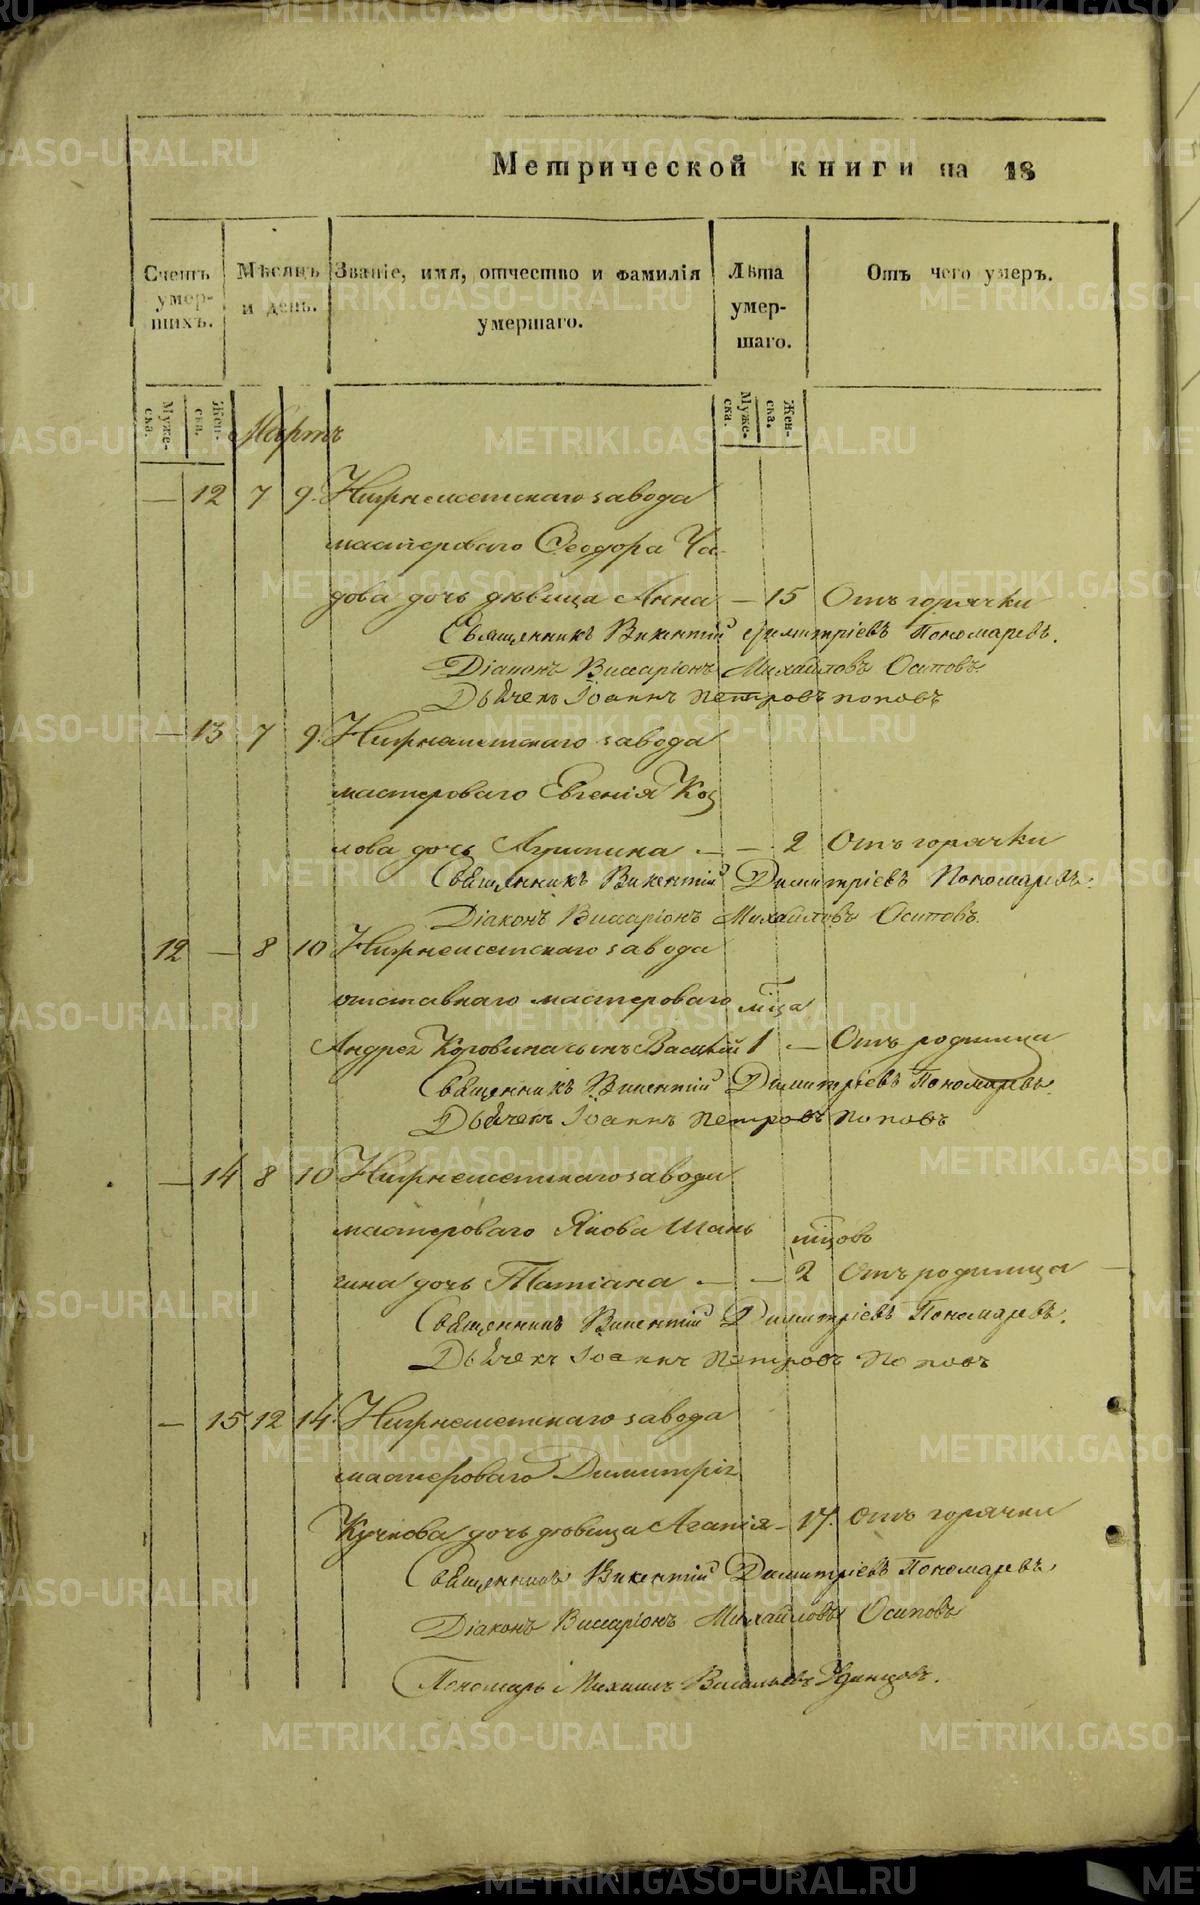 Метрической книги на 18
Счетъ умер-шихъ.
Мѣсяцъ и день.
Званіе, имя, отчество и фамилія умершаго.
Лѣта умер-шаго.
Отъ чего умеръ.
Муже-ска.
Жен-ска.
Муже-ска.
Жен-ска.
Мартъ
— 12 7 9. Нижнеисетскаго завода
мастероваго Ѳеодора Ча-
дова дочь дѣвица Анна — 15 Отъ горячки
Священникъ Викентій Димитріевъ Пономаревъ.
Діаконъ Виссаріонъ Михайловъ Осиповъ.
Дьячекъ Іоаннъ Петровъ Поповъ
— 13 7 9. Нижнеисетскаго завода
мастероваго Евгенія Коз
лова дочь Агрипина — — 2 Отъ горячки
Священникъ Викентій Димитріевъ Пономаревъ.
Діаконъ Виссаріонъ Михайловъ Осиповъ.
12 — 8 10 Нижнеисетскаго завода
отставнаго мастероваго мѣца
Андрея Коровина сынъ Василій 1 — Отъ родимца
Священникъ Викентій Димитріевъ Пономаревъ.
Дьячекъ Іоаннъ Петровъ Поповъ
— 14 8 10 Нижнеисетскаго завода
мастероваго Якова Шань мѣцовъ
гина дочь Татіана — — 2 Отъ родимца
Священникъ Викентій Димитріевъ Пономаревъ.
Дьячекъ Іоаннъ Петровъ Поповъ
— 15 12 14. Нижнеисетскаго завода
мастероваго Димитрія
Кучкова дочь дѣвица Агапія — 17. Отъ горячки
Священникъ Викентій Димитріевъ Пономаревъ
Діаконъ Виссаріонъ Михайловъ Осиповъ
Пономарь Михаилъ Васильевъ Удинцовъ.
METRIKI.GASO-URAL.RU